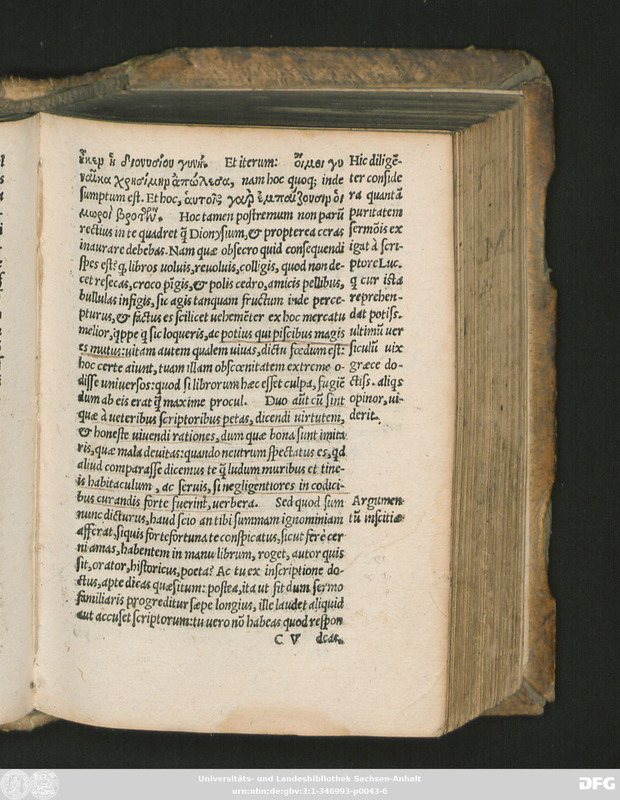 ἧκεν ἡ διονυσίου γυνή. Et iterum: οἴμοι γυ
ναῖκα χρησίμην ἀπώλεσα, nam hoc quoq; inde
sumptum est. Et hoc, ἁυτοῖς γαρ ἐμπαίζουσιν ὁι
μωροὶ βροτῶν. Hoc tamen postremum non parū
rectius in te quadret q̄ Dionysium, & propterea ceras
inaurare debebas. Nam quæ obsecro quid consequendi
spes est? q, libros uoluis, reuoluis, colligis, quod non de-
cet resecas, croco pīgis, & polis cedro, amicis pellibus,
bullulas infigis, sic agis tanquam fructum inde perce-
pturus, & factus es scilicet uehemēter ex hoc mercatu
melior, q̄ppe q sic loqueris, ac potius qui piscibus magis
es mutus: uitam autem qualem uiuas, dictu fœdum est:
hoc certe aiunt, tuam illam obscœnitatem extreme o-
disse uniuersos: quod si librorum hæc esset culpa, fugiē
dum ab eis erat q̄ maxime procul. Duo aūt cū sint
quæ à ueteribus scriptoribus petas, dicendi uirtutem,
& honeste uiuendi rationes, dum quæ bona sunt imita
ris, quæ mala deuitas: quando neutrum spectatus es, qd
aliud comparasse dicemus te q̄ ludum muribus et tine-
is habitaculum, ac seruis, si negligentiores in codici-
bus curandis forte fuerint, uerbera. Sed quod sum
nunc dicturus, haud scio an tibi summam ignominiam
afferat, siquis forte fortuna te conspicatus, sicut ferè cer
ni amas, habentem in manu librum, roget, autor quis
sit, orator, historicus, poeta? Ac tu ex inscriptione do-
ctus, apte dicas quæsitum: postea, ita ut fit dum sermo
familiaris progreditur sæpe longius, ille laudet aliquid
aut accuset scriptorum: tu uero nō habeas quod respon
C V deas.
Hic diligē-
ter conside
ra quantā
puritatem
sermōis ex
igat à scri-
ptore Luc.
q cur ista
reprehen-
dat potiss.
ultimū uer
siculū uix
græce do-
ctiss. aliqs
opinor, ui-
derit.
Argumen
tū inscitiæ
Universitäts- und Landesbibliothek Sachsen-Anhalt
urn:nbn:de:gbv:3:1-346993-p0043-6
DFG